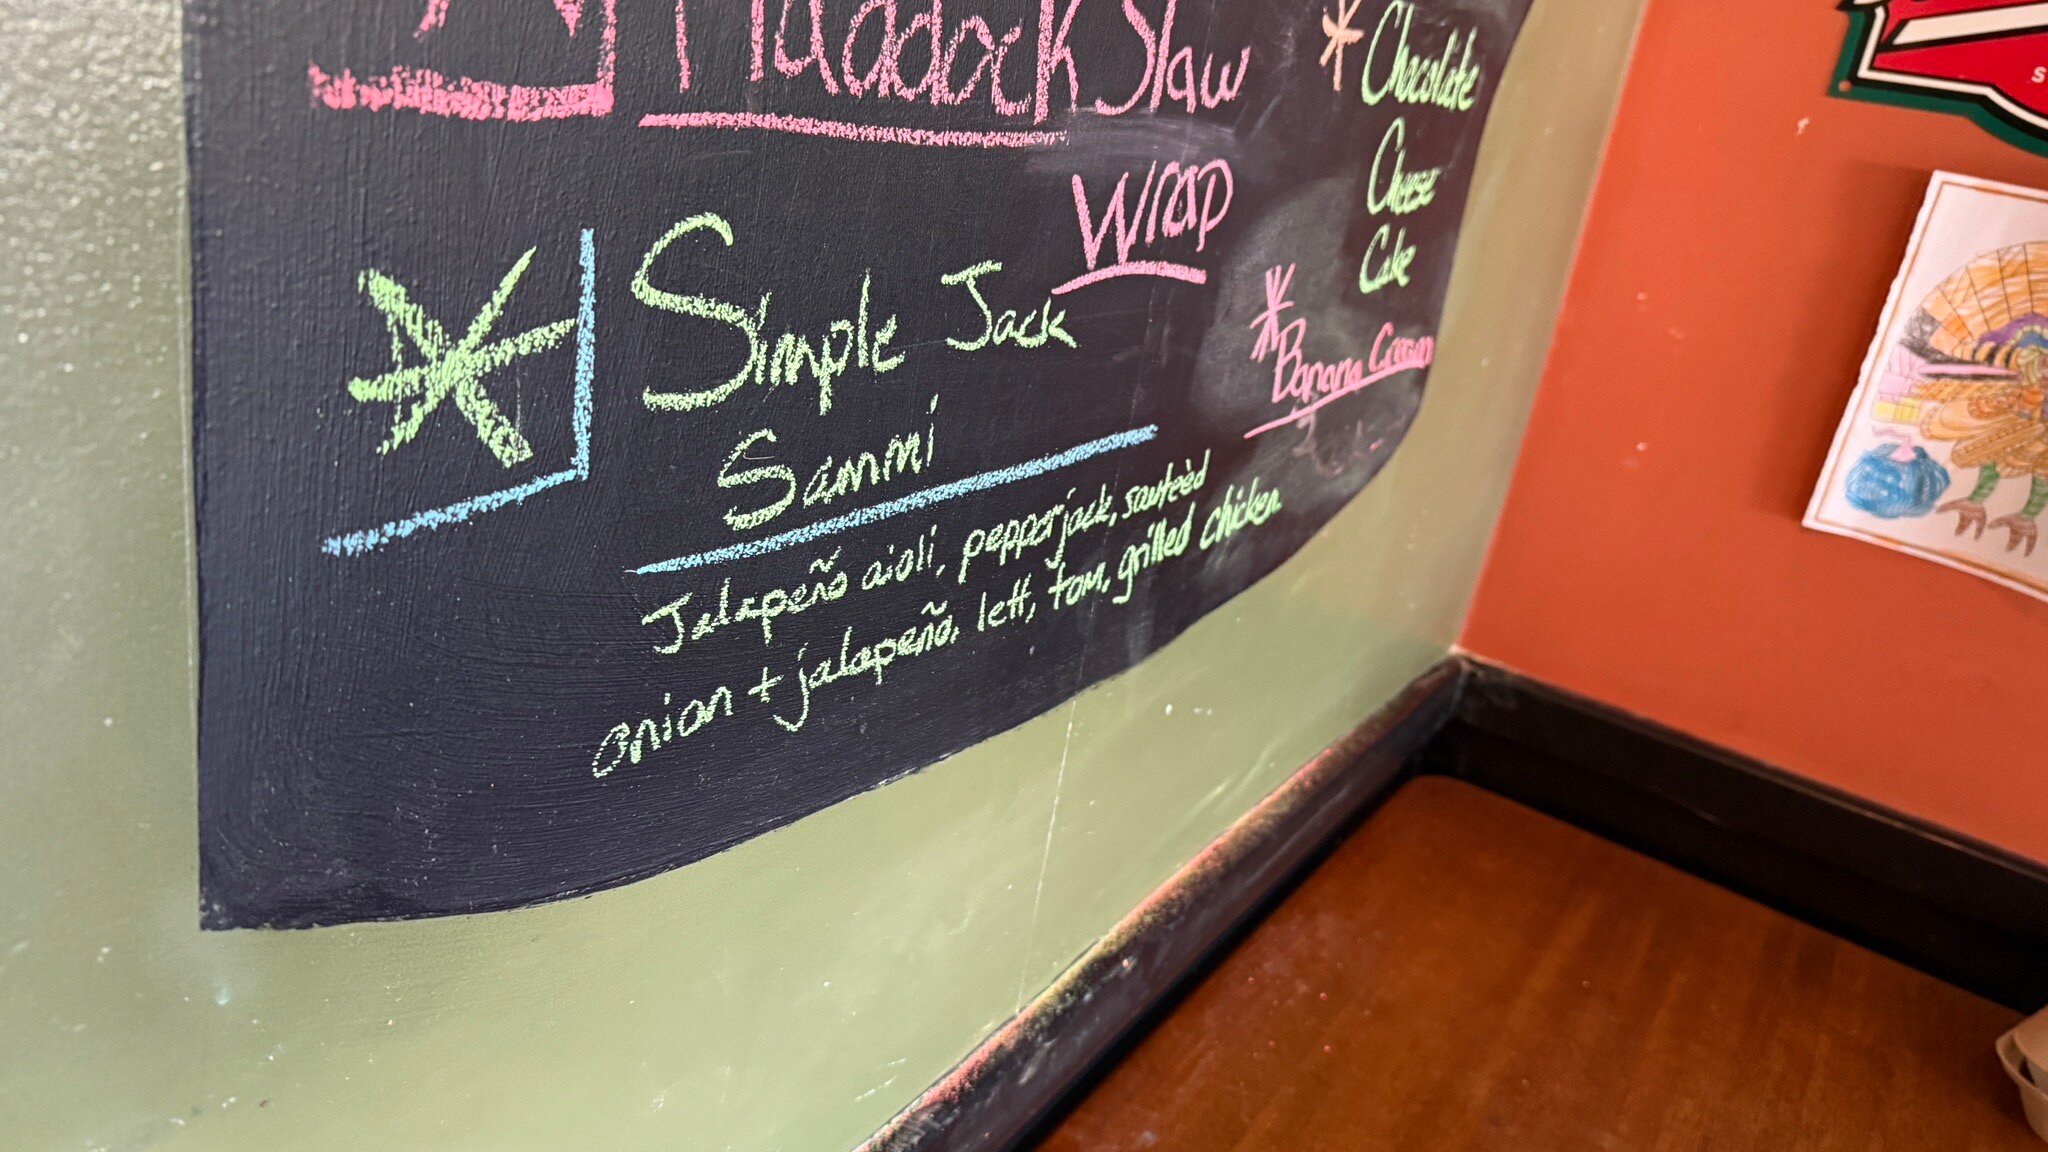 Haddock Slaw
Wrap
Simple Jack
Sammi
Jalapeño aioli, pepperjack, sauteèd
onion + jalapeño, lett, tom, grilled chicken
Chocolate
Cheese
Cake
Banana Cream